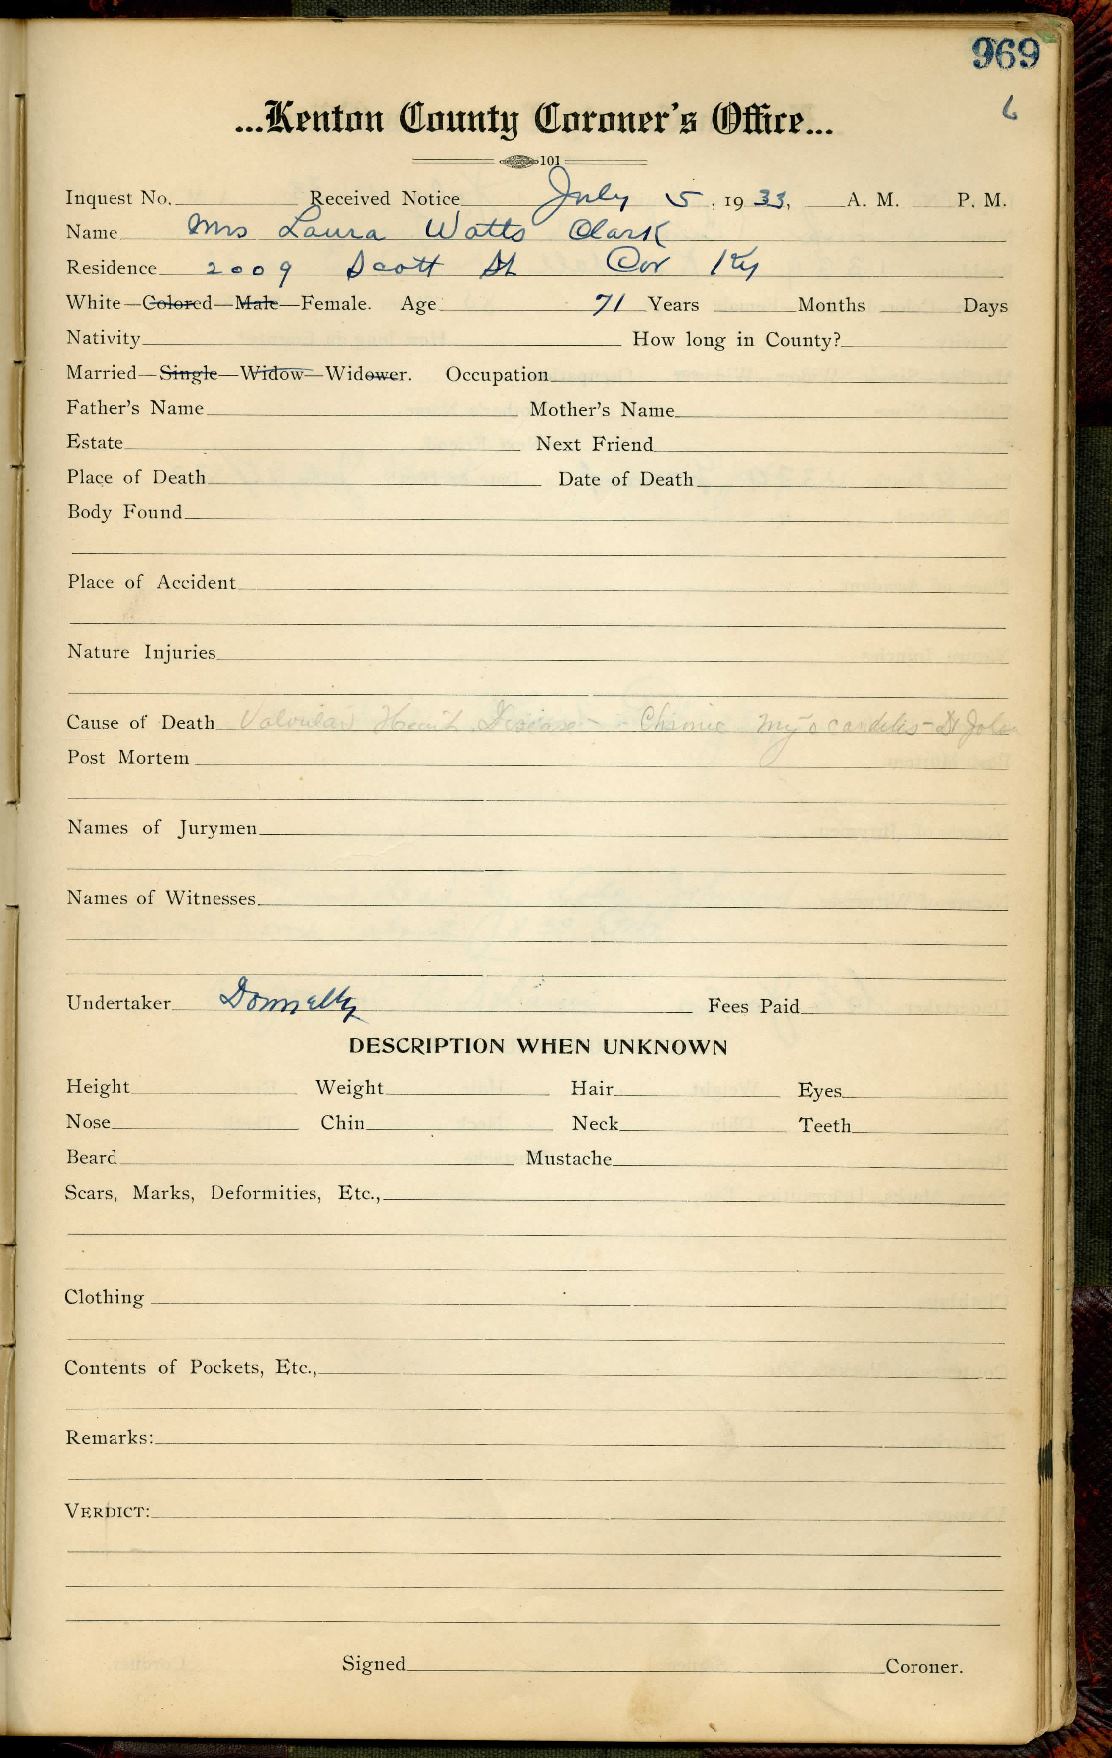 969
6
...Kenton County Coroner's Office...
101
Inquest No. Received Notice July 5, 1933, A. M. P. M.
Name Mrs Laura Watts Clark
Residence 2009 Scott St Cov Ky
White—Colored—Male—Female. Age 71 Years Months Days
Nativity How long in County?
Married—Single—Widow—Widower. Occupation
Father's Name Mother's Name
Estate Next Friend
Place of Death Date of Death
Body Found
Place of Accident
Nature Injuries
Cause of Death Valvular Heart Disease - Chronic Myocarditis - Dr
Post Mortem
Names of Jurymen
Names of Witnesses
Undertaker Donnelly Fees Paid
DESCRIPTION WHEN UNKNOWN
Height Weight Hair Eyes
Nose Chin Neck Teeth
Beard Mustache
Scars, Marks, Deformities, Etc.,
Clothing
Contents of Pockets, Etc.,
Remarks:
VERDICT:
Signed Coroner.